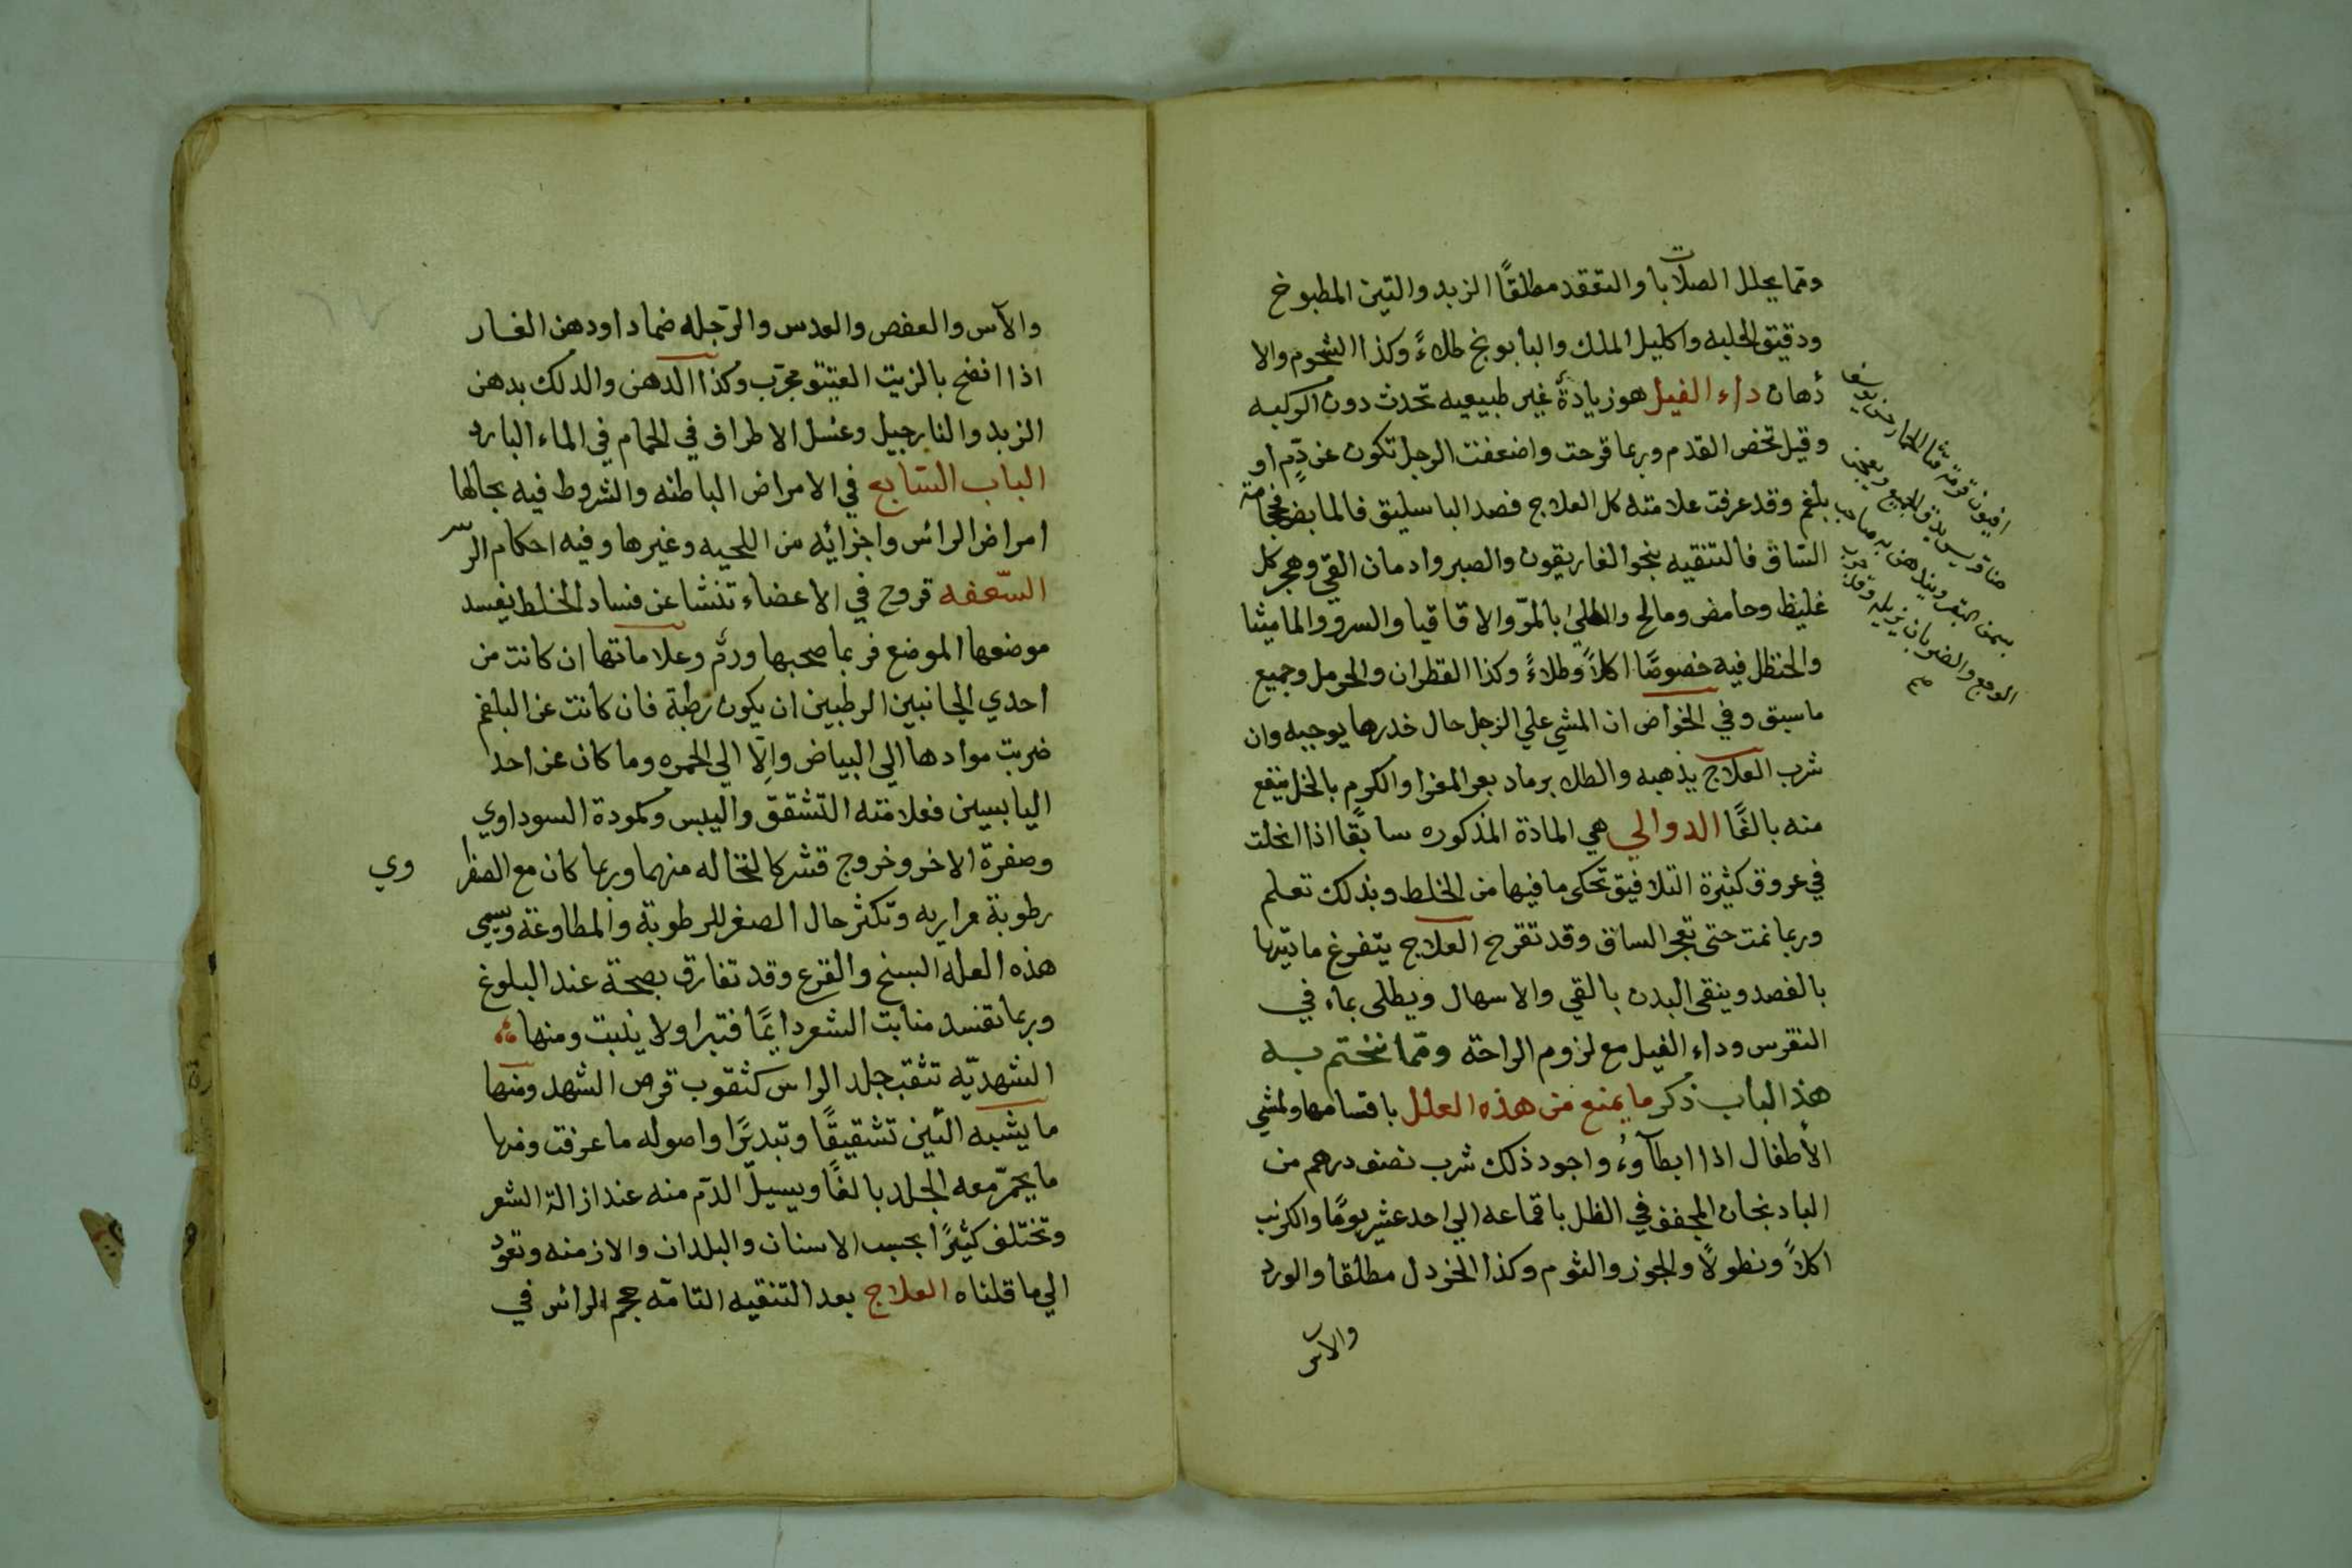 ومما يحلل الصلابات والتعقد مطلقًا الزبد والتين المطبوخ
ودقيق الحلبه واكليل الملك والبابونج طلاءً وكذا الشحوم والا
دهان داء الفيل هو زيادةٌ غير طبيعيه تحدث دون الركبه
وقيل تخص القدم وربما قرحت واضعفت الرجل تكون عن دمٍ او
بلغم وقد عرفت علامته كل العلاج فصد الباسليق فالمابض فحجامة
الساق فالتنقيه بنحو الغاريقون والصبر وادمان القي وهجر كل
غليظ وحامض ومالح والطلي بالمرّ والاقاقيا والسرو والماميثا
والحنظل فيه خصوصًا اكلاً وطلاءً وكذا القطران والحرمل وجميع
ما سبق وفي الخواص ان المشي علي الرجل حال خدرها يوجبه وان
شرب العلاج يذهبه والطلا برماد بعر المعز او الكرم بالخل ينفع
منه بالغًا الدوالي هي المادة المذكوره سابقًا اذا انحلت
في عروق كثيرة التلافيق تحكى ما فيها من الخلط وبذلك تعلم
وربما نمت حتى تعجر الساق وقد تقرح العلاج يتفرغ مادتها
بالفصد وينقى البدن بالقي والاسهال ويطلى بماء في
النقرس وداء الفيل مع لزوم الراحة ومما نختم به
هذ الباب ذكر ما يمنع من هذه العلل باقسامها ولمشي
الأطفال اذا ابطآوءُ واجود ذلك شرب نصف درهم من
البادنجان المجفف في الظل باقماعه الي احد عشر يومًا والكرنب
اكلاً ونطولاً والجوز والثوم وكذا الخردل مطلقا والورد
والاس
افيون قوقة قثا الحمار
حنا قريس يدق الجميع ويعجن
بسمن البقر ويدهن به صاحب
الوجع والضربان يزيله
صح
والآس والعفص والعدس والرجله ضمادا ودهن الغار
اذا انضج بالزيت العتيق مجرّب وكذا الدهن والدلك بدهن
الزبد والنارجيل وغسل الاطراف في الحمام في الماء البارد
الباب السابع في الامراض الباطنه والشروط فيه بحالها
امراض الرائس واجزائه من اللحيه وغيرها وفيه احكام الرّس
السّعفه قروح في الاعضاء تنشا عن فساد الخلط يفسد
موضعها الموضع فربما صحبها ورمٌ وعلاماتها ان كانت من
احدي الجانبين الرطبين ان يكون رطبة فان كانت عن البلغم
ضربت موادها الي البياض وإلّا الي الحمره وما كان عن احد
اليابسين فعلامته التشقق واليبس وكمودة السوداوي
وصفرة الاخر وخروج قشر كالنخاله منهما وربما كان مع الصفرا
وي
رطوبة مراريه وتكثر حال الصغر للرطوبة والمطاوعة وتسمي
هذه العله السنج والقرع وقد تفارق بصحة عند البلوغ
وربما تفسد منابت الشعر دايمًا فتبرا ولا ينبت ومنها
الشهديّه تثقب جلد الراس كثقوب قرص الشهد ومنها
ما يشبه التين تشقيقًا وتبدرًا واصوله ما عرفت ومنها
ما يحمرّ معه الجلد بالغًا ويسيل الدم منه عند ازالة الشعر
وتختلف كثيرًا بحسب الاسنان والبلدان والازمنه وتعود
الي ما قلناه العلاج بعد التنقيه التامّه حجم الرائس في